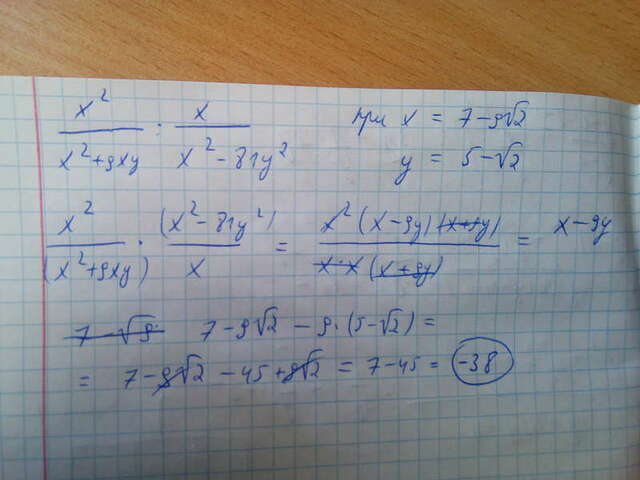 x²/(x²+9xy) : x/(x²-81y²) при x = 7-9√2
y = 5-√2
x²/(x²+9xy) · (x²-81y²)/x = x²(x-9y)(x+9y)/(x·x(x+9y)) = x-9y
7-√9 7-9√2 - 9·(5-√2) =
= 7-9√2 -45+9√2 = 7-45 = -38